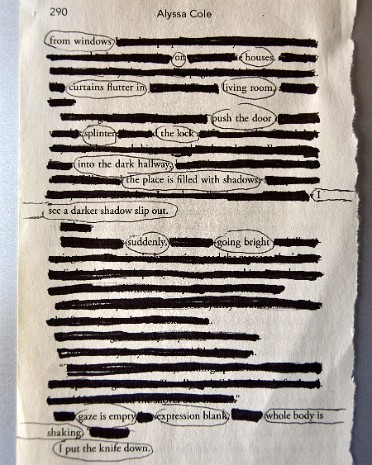 290 Alyssa Cole
from windows
on houses
curtains flutter in living room,
push the door
splinter the lock
into the dark hallway,
the place is filled with shadows
I
see a darker shadow slip out.
suddenly, going bright
gaze is empty expression blank, whole body is
shaking
I put the knife down.